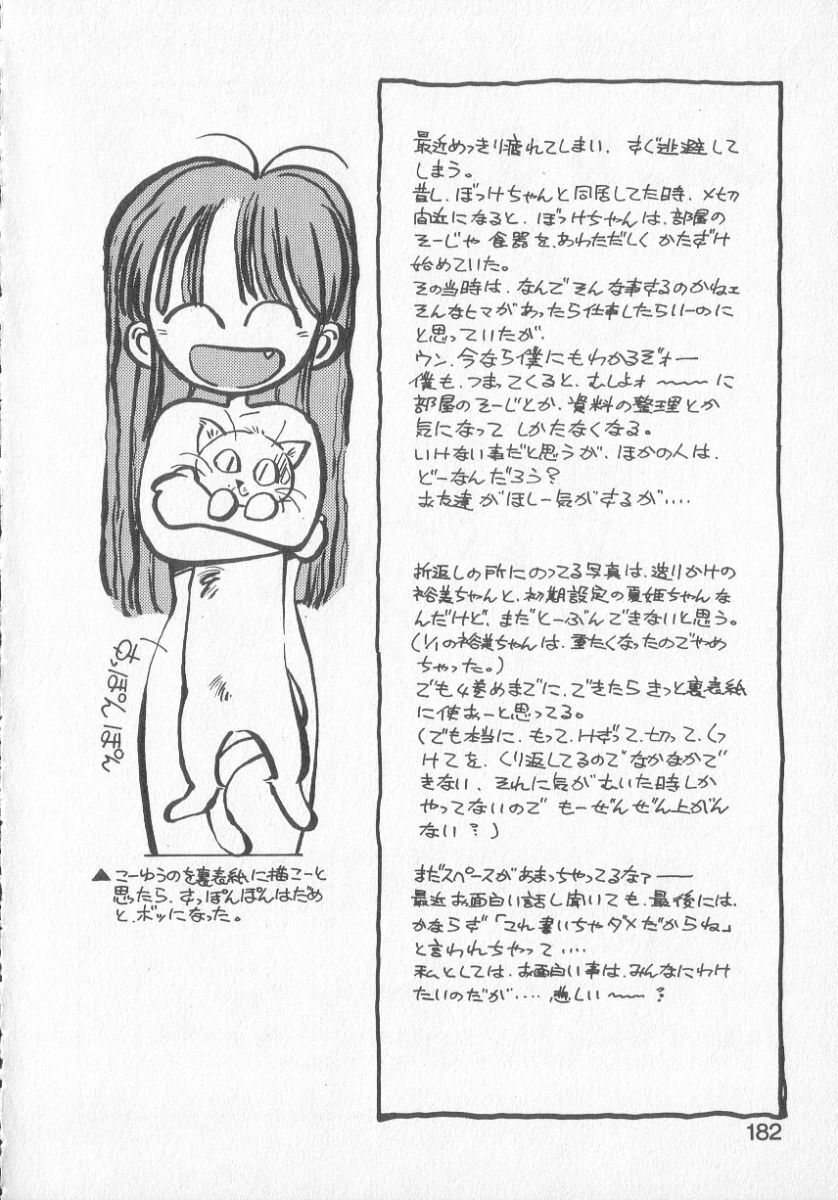 最近めっきり疲れてしまい、すぐ逃避して
しまう。
昔し、ぼっけちゃんと同居してた時、〆切
間近になると、ぼっけちゃんは、部屋の
そーじや 食器を、あわただしく かたずけ
始めていた。
その当時は、なんで そんな事するのかねェ
そんなヒマがあったら仕事したらいーのに
と思っていたが、
ウン、今なら僕にもわかるぞォー
僕も、つまってくると、むしょォ〜〜に
部屋のそーじとか、資料の整理とか
気になって しかたなくなる。
いけない事だと思うが、ほかの人は、
どーなんだろう?
お友達 がほしー気がするが‥‥
折返しの所にのってる写真は、造りかけの
裕美ちゃんと、初期設定の夏姫ちゃんな
んだけど、まだとーぶんできないと思う。
(1/1の裕美ちゃんは、重たくなったのでやめ
ちゃった。)
でも4巻めまでに、できたら きっと裏表紙
に使おーと思ってる。
(でも本当に、もって、けずって、切って、くっ
けてを、くり返してるので なかなかで
きない、それに気がむいた時しか
やってないので もーぜんぜん上がん
ない ? )
まだスペースがあまっちゃってるなァー
最近お面白い話し聞いても、最後には、
かならず「これ書いちゃダメだからね」
と言われちゃって‥‥
私としては、お面白い事は、みんなにわけ
たいのだが‥‥悲しい〜〜?
すっぽんぽん
▲こーゆうのを裏表紙に描こーと
思ったら、すっぽんぽんはだめ
と、ボツになった。
182